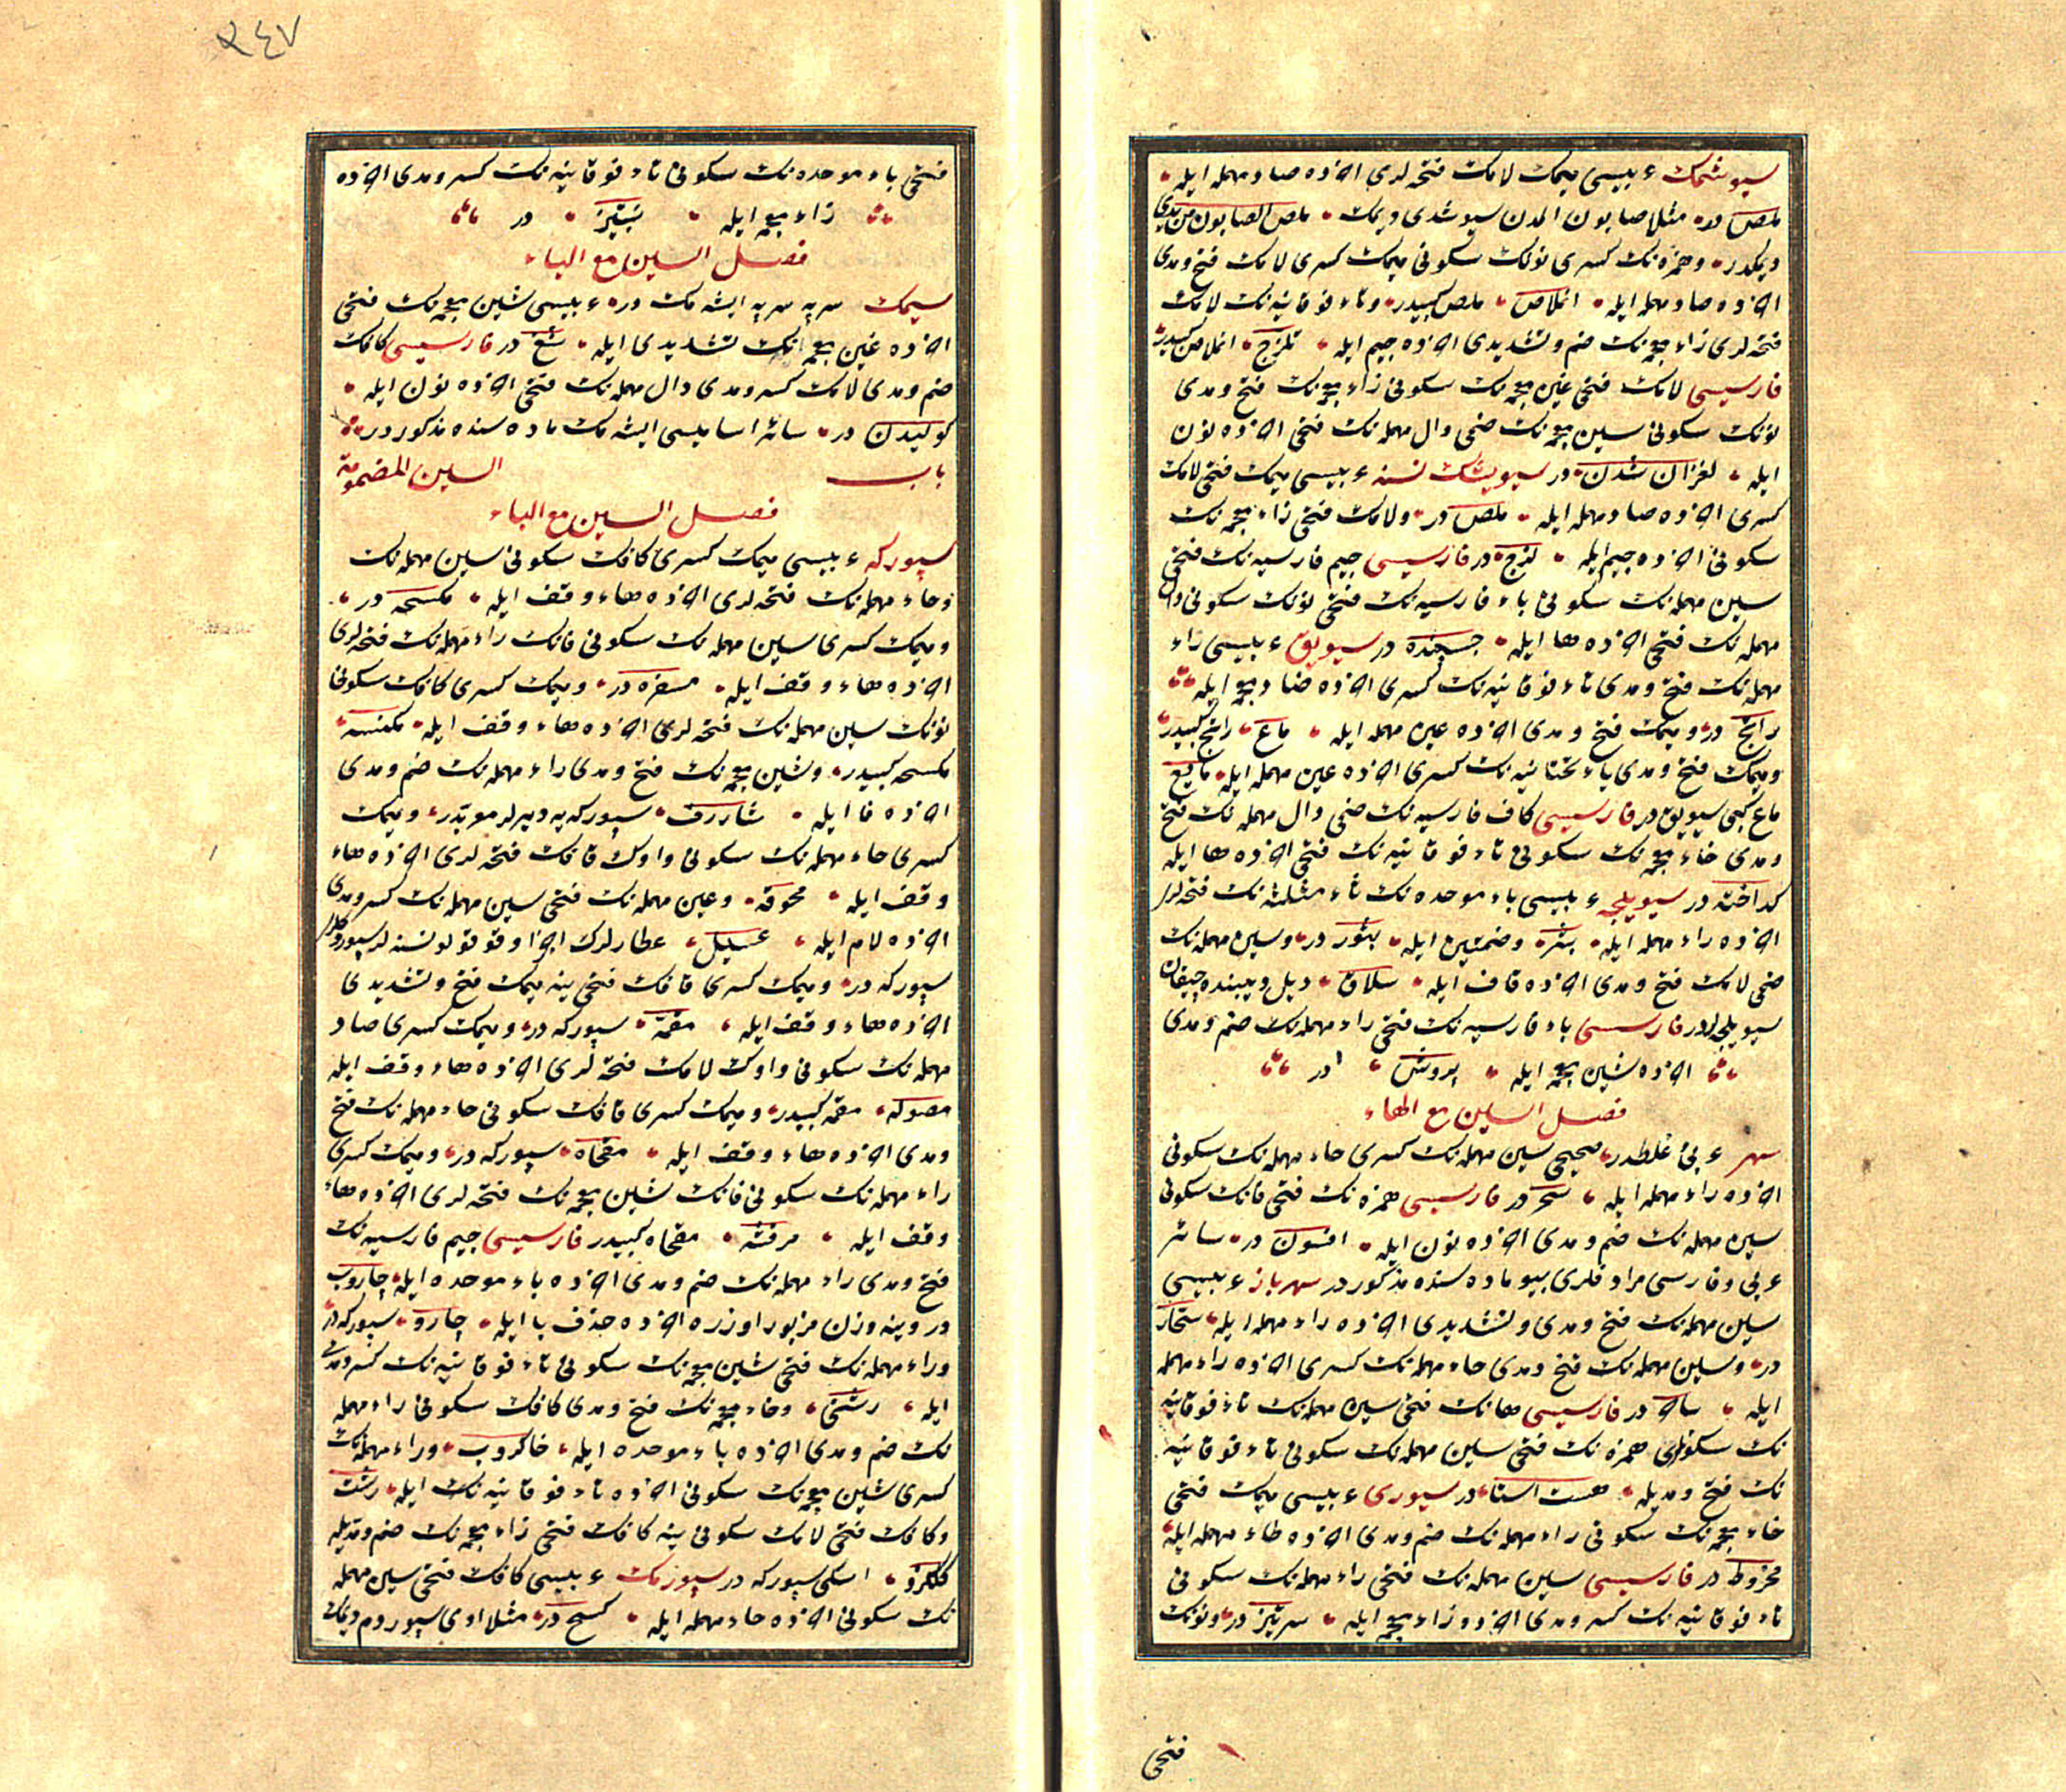 سيوشمك عربيسى ميمك لامك فتحه لرى اخرده صاد مهمله ايله
ملص در مثلا صابون المدن سيوشدى ديمك ملص الصابون من يدى
ديمكدر وهمزه نك كسرى نونك سكونى ميمك كسرى لامك فتح ومدى
اخرده صاد مهمله ايله انملاص ملص كبيدر وتاء فوقانيه نك لامك
فتحه لرى زاء معجمه نك ضم وتشديدى اخرده جيم ايله تلزج انملاص كبيدر
فارسيسى لامك فتحى غين معجمه نك سكونى زاء معجمه نك فتح ومدى
نونك سكونى شين معجمه نك ضمى دال مهمله نك فتحى اخرده نون
ايله لغزان شدن در سيويشك نسنه عربيسى ميمك فتحى لامك
كسرى اخرده صاد مهمله ايله ملص در ولامك فتحى زاء معجمه نك
سكونى اخرده جيم ايله لزج در فارسيسى جيم فارسيه نك فتحى
سين مهمله نك سكونى باء فارسيه نك فتحى نونك سكونى دال
مهمله نك فتحى اخرده ها ايله چسپنده در سيويق عربيسى راء
مهمله نك فتح ومدى تاء فوقانيه نك كسرى اخرده ضاد معجمه ايله
در وميمك فتح ومدى اخرده عين مهمله ايله ماع كبيدر
وميمك فتح ومدى ياء تحتانيه نك كسرى اخرده عين مهمله ايله مايع
ماع كبى سيويق در فارسيسى كاف فارسيه نك ضمى دال مهمله نك فتح
ومدى خاء معجمه نك سكونى تاء فوقانيه نك فتحى اخرده ها ايله
كداخته در سيويلجه عربيسى باء موحده نك ثاء مثلثه نك فتحه لرى
اخرده راء مهمله ايله بثر وضمتين ايله بثور در وسين مهمله نك
ضمى لامك فتح ومدى اخرده قاف ايله سلاق ديل ديبنده چيقان
سيويلجه لردر فارسيسى باء فارسيه نك فتحى راء مهمله نك ضم ومدى
اخرده شين معجمه ايله پروش در
فصل السين مع الهاء
سهر عربى غلطدر صحيحى سين مهمله نك كسرى حاء مهمله نك سكونى
اخرده راء مهمله ايله سحر در فارسيسى همزه نك فتحى فانك سكونى
سين مهمله نك ضم ومدى اخرده نون ايله افسون در سائر
عربى وفارسى مرادفلرى بيو ماده سنده مذكوردر سهرباز عربيسى
سين مهمله نك فتح ومدى وتشديدى اخرده راء مهمله ايله سحار
در وسين مهمله نك فتح ومدى حاء مهمله نك كسرى اخرده راء مهمله
ايله ساحر در فارسيسى هانك فتحى سين مهمله نك تاء فوقانيه
نك سكونلرى همزه نك فتحى سين مهمله نك سكونى تاء فوقانيه
نك فتح ومديله هست استا در سيورى عربيسى ميمك فتحى
خاء معجمه نك سكونى راء مهمله نك ضم ومدى اخرده طاء مهمله ايله
مخروط در فارسيسى سين مهمله نك فتحى راء مهمله نك سكونى
تاء فوقانيه نك كسر ومدى اخرده زاء معجمه ايله سرتيز در ونونك
فتحى
٢٤٧
فتحى باء موحده نك سكونى تاء فوقانيه نك كسر ومدى اخرده
زاء معجمه ايله نبتيز در
فصل السين مع الياء
سيمك سرپه سرپه ايشه مك در عربيسى شين معجمه نك فتحى
اخرده غين معجمه نك تشديدى ايله شغ در فارسيسى كافك
ضم ومدى لامك كسر ومدى دال مهمله نك فتحى اخرده نون ايله
كوليدن در سائر اساميسى ايشه مك ماده سنده مذكور در
باب السين المضمومة
فصل السين مع الباء
سپوركه عربيسى ميمك كسرى كافك سكونى سين مهمله نك
وحاء مهمله نك فتحه لرى اخرده هاء وقف ايله مكسحه در
وميمك كسرى سين مهمله نك سكونى فانك راء مهمله نك فتحه لرى
اخرده هاء وقف ايله مسفره در وميمك كسرى كافك سكونى
نونك سين مهمله نك فتحه لرى اخرده هاء وقف ايله مكنسه
مكسحه كبيدر وشين معجمه نك فتح ومدى راء مهمله نك ضم ومدى
اخرده فا ايله شاروف سپوركه يه ديرلر معربدر وميمك
كسرى حاء مهمله نك سكونى واوك قافك فتحه لرى اخرده هاء
وقف ايله محوقه وعين مهمله نك فتحى سين مهمله نك كسر ومدى
اخرده لام ايله عسيل عطارلرك اجزا وقوقولو نسنه لر سپوردكلرى
سپوركه در وميمك كسرى قافك فتحى ينه ميمك فتح وتشديدى
اخرده هاء وقف ايله مقمه سپوركه در وميمك كسرى صاد
مهمله نك سكونى واوك لامك فتحه لرى اخرده هاء وقف ايله
مصوله مقمه كبيدر وميمك كسرى قافك سكونى حاء مهمله نك فتح
ومدى اخرده هاء وقف ايله مقحاه سپوركه در وميمك كسرى
راء مهمله نك سكونى فانك شين معجمه نك فتحه لرى اخرده هاء
وقف ايله مرفشه مقحاه كبيدر فارسيسى جيم فارسيه نك
فتح ومدى راء مهمله نك ضم ومدى اخرده باء موحده ايله چاروب
در وينه وزن مزبور اوزره اخرده حذف با ايله چارو سپوركه در
وراء مهمله نك فتحى شين معجمه نك سكونى تاء فوقانيه نك كسر ومدى
ايله رشتى وخاء معجمه نك فتح ومدى كافك سكونى راء مهمله
نك ضم ومدى اخرده باء موحده ايله خاكروب وراء مهمله نك
كسرى شين معجمه نك سكونى اخرده تاء فوقانيه نك ايله رشت
وكافك فتحى لامك سكونى ينه كافك فتحى زاء معجمه نك ضم ومديله
كلكزو اسكى سپوركه در سپورمك عربيسى كافك فتحى سين مهمله
نك سكونى اخرده حاء مهمله ايله كسح در مثلا اوى سپوردم ديمك